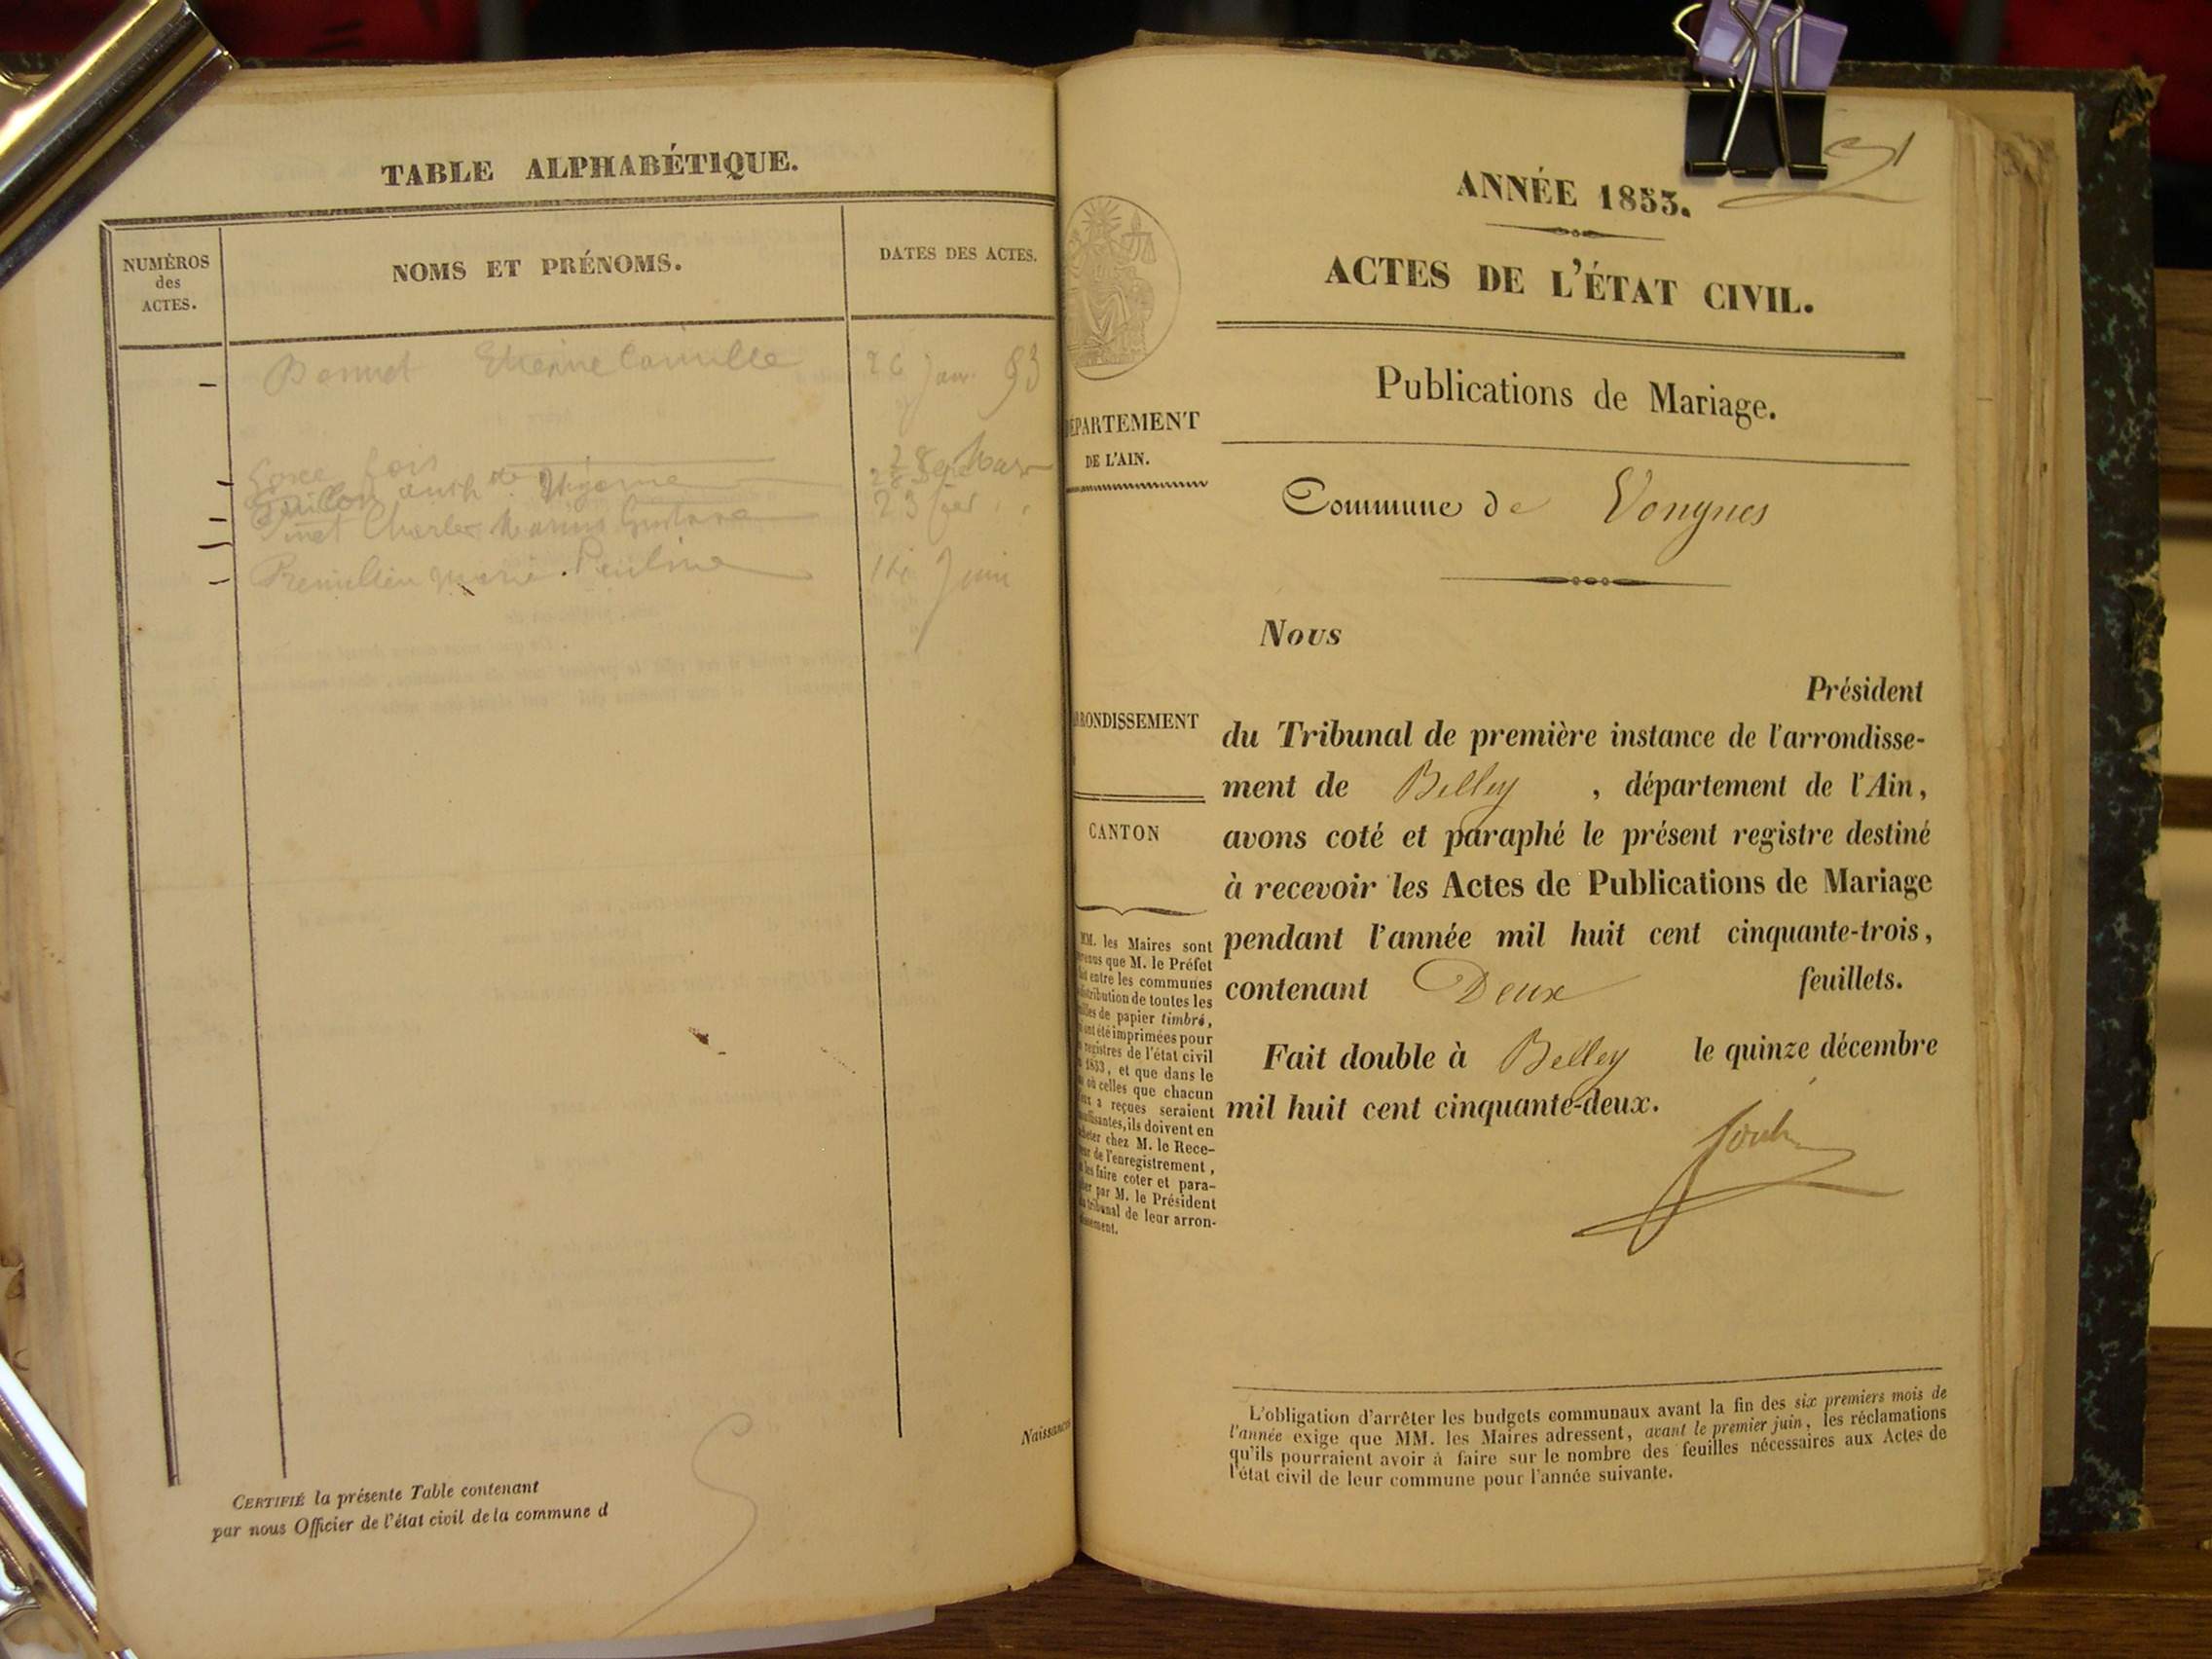 TABLE ALPHABÉTIQUE.
NUMÉROS
des
ACTES.
NOMS ET PRÉNOMS.
DATES DES ACTES.
Etienne Camille 26 Janv. 53
Charles Marius Gustave 23
Marie Pauline Juin
Naissances
CERTIFIÉ la présente Table contenant
par nous Officier de l'état civil de la commune d
ANNÉE 1853.
ACTES DE L'ÉTAT CIVIL.
Publications de Mariage.
DÉPARTEMENT
DE L'AIN.
Commune de Vongnes
ARRONDISSEMENT
CANTON
MM. les Maires sont
prévenus que M. le Préfet
fait entre les communes
distribution de toutes les
feuilles de papier timbré,
qui ont été imprimées pour
les registres de l'état civil
de 1853, et que dans le
cas où celles que chacun
d'eux a reçues seraient
insuffisantes, ils doivent en
acheter chez M. le Rece-
veur de l'enregistrement,
et les faire coter et para-
pher par M. le Président
du tribunal de leur arron-
dissement.
Nous
Président
du Tribunal de première instance de l'arrondisse-
ment de Belley , département de l'Ain,
avons coté et paraphé le présent registre destiné
à recevoir les Actes de Publications de Mariage
pendant l'année mil huit cent cinquante-trois,
contenant Deux feuillets.
Fait double à Belley le quinze décembre
mil huit cent cinquante-deux.
L'obligation d'arrêter les budgets communaux avant la fin des six premiers mois de
l'année exige que MM. les Maires adressent, avant le premier juin, les réclamations
qu'ils pourraient avoir à faire sur le nombre des feuilles nécessaires aux Actes de
l'état civil de leur commune pour l'année suivante.